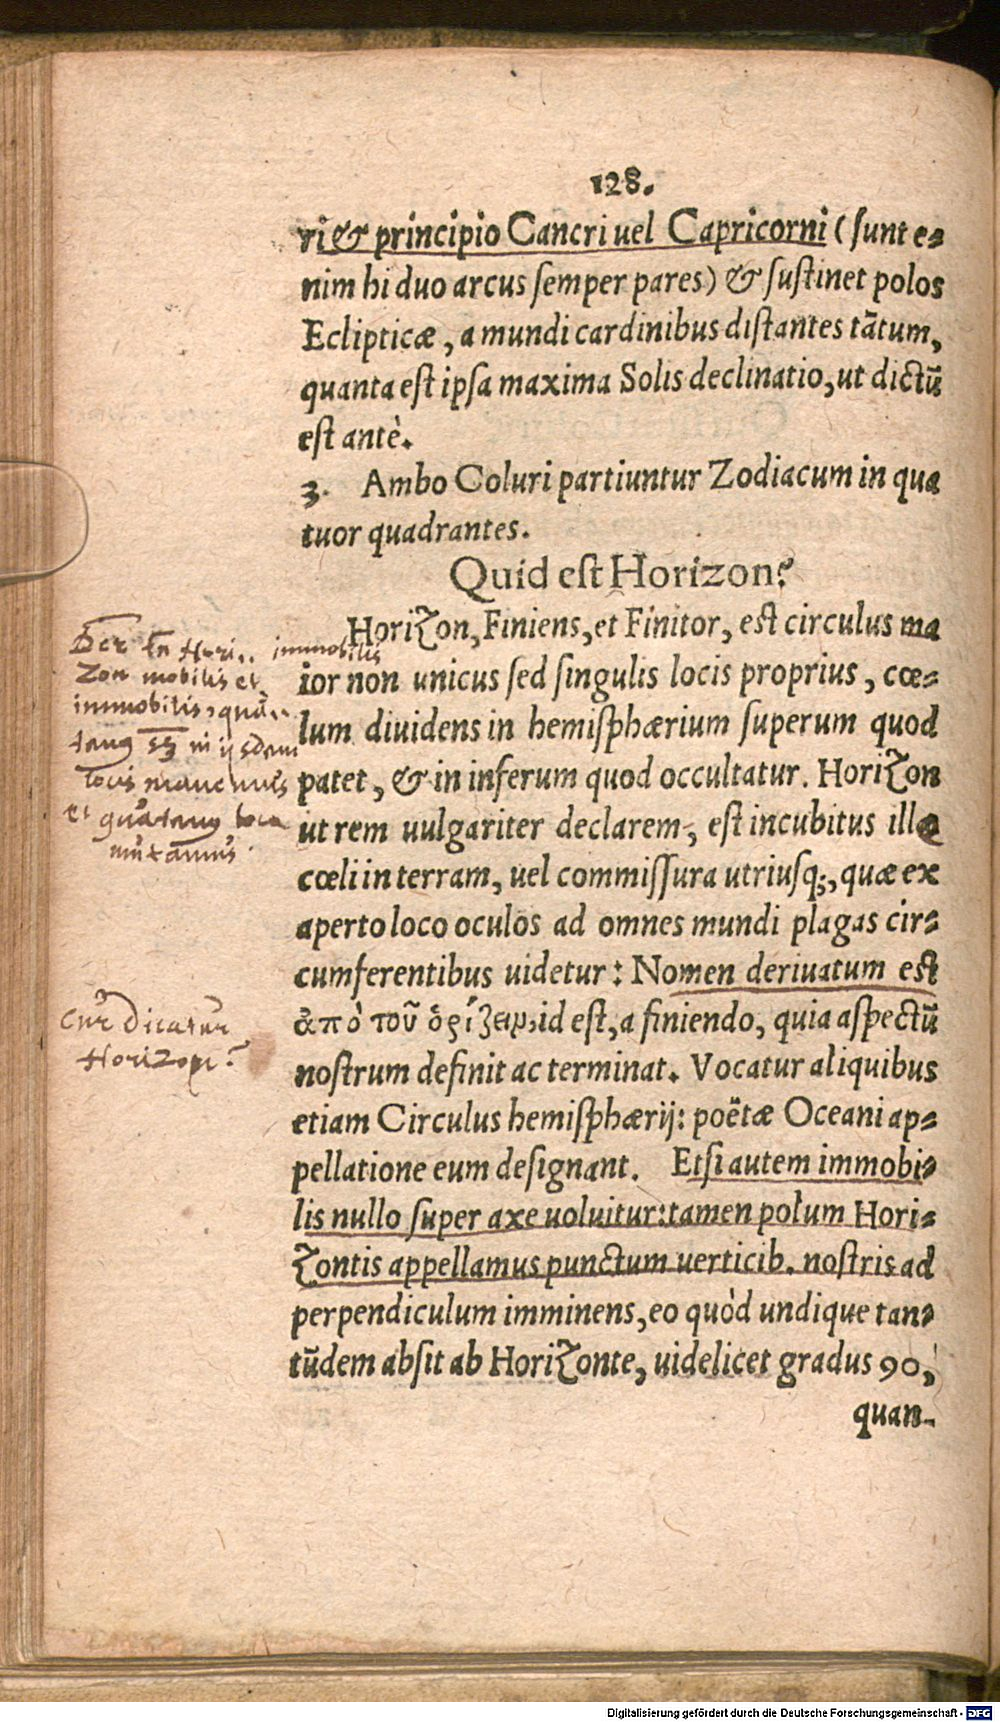 128.
ri & principio Cancri uel Capricorni (sunt e-
nim hi duo arcus semper pares) & sustinet polos
Eclipticæ, a mundi cardinibus distantes tātum,
quanta est ipsa maxima Solis declinatio, ut dictū
est antè.
3. Ambo Coluri partiuntur Zodiacum in qua
tuor quadrantes.
Quid est Horizon?
Horizon, Finiens, et Finitor, est circulus ma
ior non unicus sed singulis locis proprius, cœ-
lum diuidens in hemisphærium superum quod
patet, & in inferum quod occultatur. Horizon
ut rem uulgariter declarem, est incubitus ille
cœli in terram, uel commissura utriusq;, quæ ex
aperto loco oculos ad omnes mundi plagas cir-
cumferentibus uidetur: Nomen deriuatum est
ἀπὸ τοῦ ὁρίζειν, id est, a finiendo, quia aspectū
nostrum definit ac terminat. Vocatur aliquibus
etiam Circulus hemisphærij: poëtæ Oceani ap-
pellatione eum designant. Etsi autem immobi-
lis nullo super axe uoluitur: tamen polum Hori-
zontis appellamus punctum uerticib. nostris ad
perpendiculum imminens, eo quòd undique tan-
tūdem absit ab Horizonte, uidelicet gradus 90,
quan-
Hori..
immobilis
zon mobilis et
immobilis, quā..
in ijsdem
locis manemus
et quatenus loca
mutamus.
Cur Dicatur
Horizon?
Digitalisierung gefördert durch die Deutsche Forschungsgemeinschaft - DFG